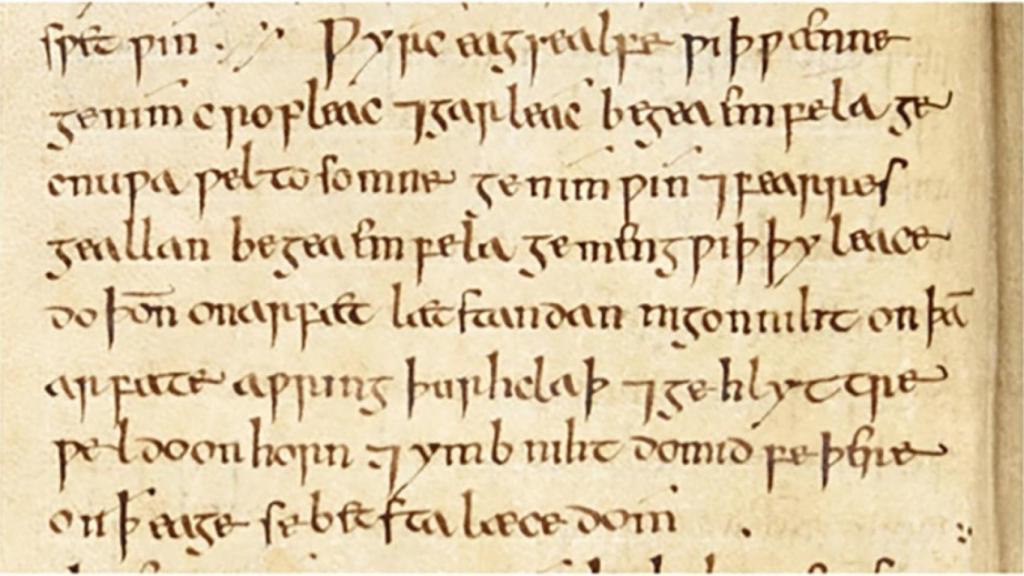 spet ƿin . Ƿyrc eagsealfe ƿiþ ƿænne
genim cropleac ⁊garleac begea emfela ge
cnuƿa ƿel tosomne genim ƿin ⁊fearres
geallan begea emfela gemeng ƿiþ þy leace
do þoñ on arfæt læt standan nigon niht on þā
arfæte aƿring þurh claþ ⁊gehlyttre
ƿel do on horn ⁊ymb niht do mid feþere
on ꝥ eage se betsta læce dom .